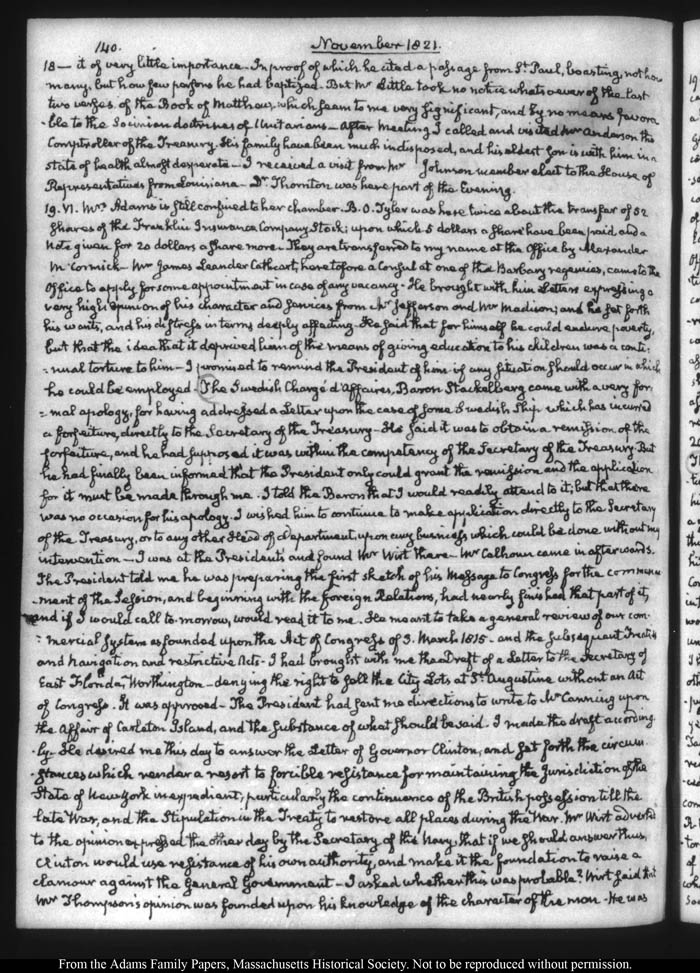 140.
November 1821.
18— it of very little importance. In proof of which he cited a passage from St. Paul, boasting, not how
many, but how few persons he had baptized. But Mr Little took no notice whatsoever of the last
two verses of the Book of Matthew, which seem to me very significant, and by no means favora
-ble to the Socinian doctrines of Unitarians— After Meeting I called and visited Mr Anderson the
Comptroller of the Treasury. His family have been much indisposed, and his eldest Son is with him in a
state of health almost desperate— I received a visit from Mr Johnson member elect to the House of
Representatives from Louisiana— Dr. Thornton was here part of the Evening.
19. VI. Mrs Adams is still confined to her chamber. B. O. Tyler was here twice about the transfer of 52
shares of the Franklin Insurance Company Stock; upon which 5 dollars a share have been paid and a
Note given for 20 dollars a share more. They are transferred to my name at the Office by Alexander
McCormick— Mr James Leander Cathcart, heretofore a Consul at one of the Barbary regencies, came to the
Office to apply for some appointment in case of any vacancy. He brought with him Letters expressing a
very high opinion of his character and services from Mr Jefferson and Mr Madison; and he set forth
his wants, and his distress in terms deeply affecting. He said that for himself he could endure poverty,
but that the idea that it deprived him of the means of giving education to his children was a conti-
=nual torture to him— I promised to remind the President of him if any situation should occur in which
he could be employed. The Swedish Chargé d'Affaires, Baron Stackelberg came with a very for-
=mal apology, for having addressed a Letter upon the case of some Swedish Ship which has incurred
a forfeiture, directly to the Secretary of the Treasury— He said it was to obtain a remission of the
forfeiture, and he had supposed it was within the competency of the Secretary of the Treasury. But
he had finally been informed that the President only could grant the remission and the application
for it must be made through me. I told the Baron that I would readily attend to it; but that there
was no occasion for his apology. I wished him to continue to make application directly to the Secretary
of the Treasury, or to any other Head of Department, upon any business which could be done without my
intervention— I was at the President's and found Mr Wirt there— Mr Calhoun came in afterwards.
The President told me he was preparing the first sketch of his Message to Congress for the commence
-ment of the Session, and beginning with the foreign Relations, had nearly finished that part of it,
and if I would call to-morrow, would read it to me. He meant to take a general review of our com-
=mercial System as founded upon the Act of Congress of 3. March 1815. and the subsequent Treaties
and navigation and restrictive Acts. I had brought with me the Draft of a Letter to the Secretary of
East Florida, Worthington— denying the right to sell the City Lots at St. Augustine without an Act
of Congress. It was approved— The President had sent me directions to write to Mr Canning upon
the Affair of Carleton Island, and the substance of what should be said. I made the draft according-
ly. He desired me this day to answer the Letter of Governor Clinton, and set forth the circum
-stances which render a resort to forcible resistance for maintaining the Jurisdiction of the
State of New York inexpedient; particularly the continuance of the British possession till the
late War, and the Stipulation in the Treaty to restore all places during the War. Mr Wirt adverted
to the opinion expressed the other day by the Secretary of the Navy, that if we should answer thus,
Clinton would use resistance of his own authority, and make it the foundation to raise a
clamour against the General Government— I asked whether this was probable? Wirt said that
Mr Thompson's opinion was founded upon his knowledge of the character of the man. He was
From the Adams Family Papers, Massachusetts Historical Society. Not to be reproduced without permission.